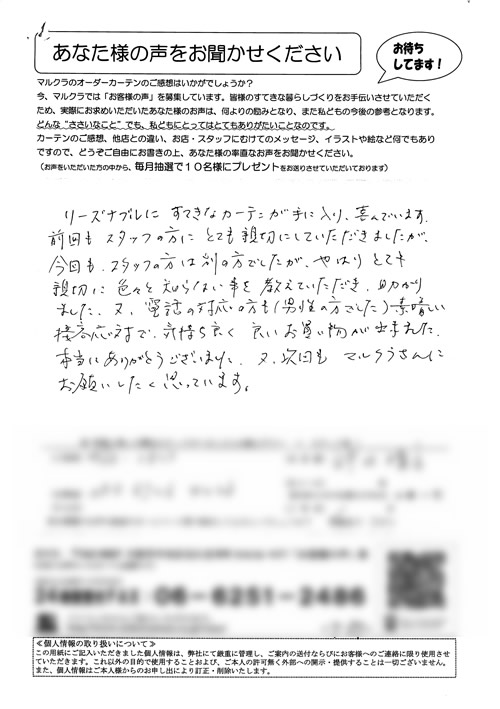 あなた様の声をお聞かせください
お待ち
してます！
マルクラのオーダーカーテンのご感想はいかがでしょうか？
今、マルクラでは「お客様の声」を募集しています。皆様のすてきな暮らしづくりをお手伝いさせていただく
ため、実際にお求めいただいたあなた様のお声は、何よりの励みとなり、また私どもの今後の参考となります。
どんな“ささいなこと”でも、私どもにとってはとてもありがたいことなのです。
カーテンのご感想、他店との違い、お店・スタッフにむけてのメッセージ、イラストや絵など何でもあり
ですので、どうぞご自由にお書きの上、あなた様の率直なお声をお聞かせください。
（お声をいただいた方の中から、毎月抽選で１０名様にプレゼントをお送りさせていただいております）
リーズナブルに すてきなカーテンが手に入り、喜んでいます。
前回も スタッフの方に とても親切にしていただきましたが、
今回も、スタッフの方は別の方でしたが、やはり とても
親切に 色々と 知らない事を 教えていただき、助かり
ました。又、電話の対応の方も(男性の方でした)素晴しい
接客応対で、気持ち良く 良いお買い物が出来ました。
本当にありがとうございました。又、次回も マルクラさんに
お願いしたく思っています。
06-6251-2486
≪個人情報の取り扱いについて≫
この用紙にご記入いただきました個人情報は、弊社にて厳重に管理し、ご案内の送付ならびにお客様へのご連絡に限り使用させ
ていただきます。これ以外の目的で使用することおよび、ご本人の許可無く外部への開示・提供することは一切ございません。
また、個人情報はご本人様からのお申し出により訂正・削除いたします。